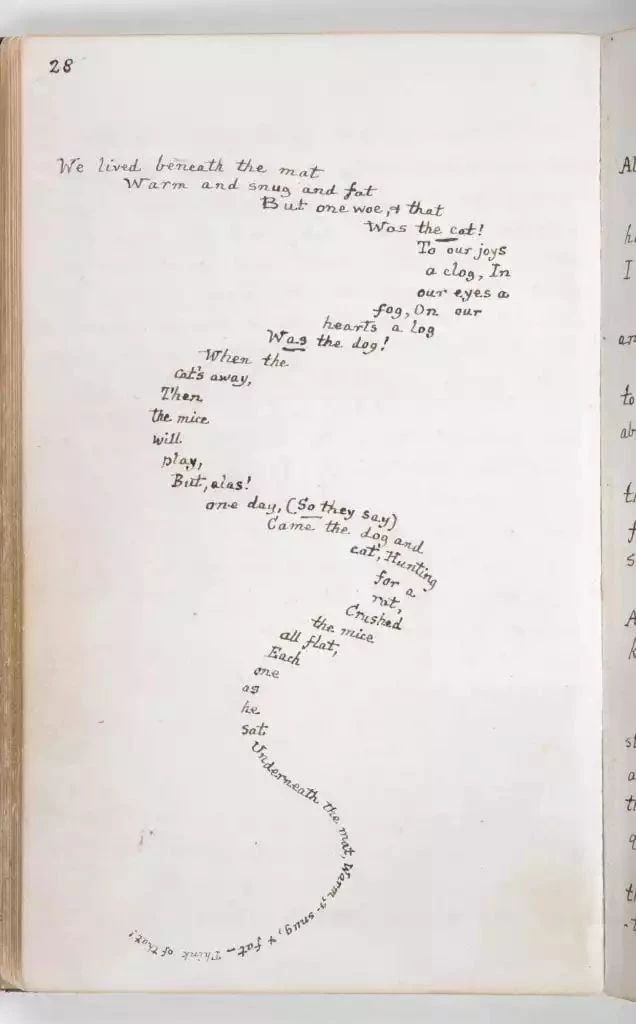 28
We lived beneath the mat
Warm and snug and fat
But one woe, & that
Was the cat!
To our joys
a clog, In
our eyes a
fog, On our
hearts a log
Was the dog!
When the
cat's away,
Then
the mice
will
play,
But, alas!
one day, (So they say)
Came the dog and
cat, Hunting
for a
rat,
Crushed
the mice
all flat,
Each
one
as
he
sat
Underneath the mat, Warm, & snug, & fat — Think of that!
Al
h
I
an
to
ab
th
f
s
A
k
st
a
th
q
th